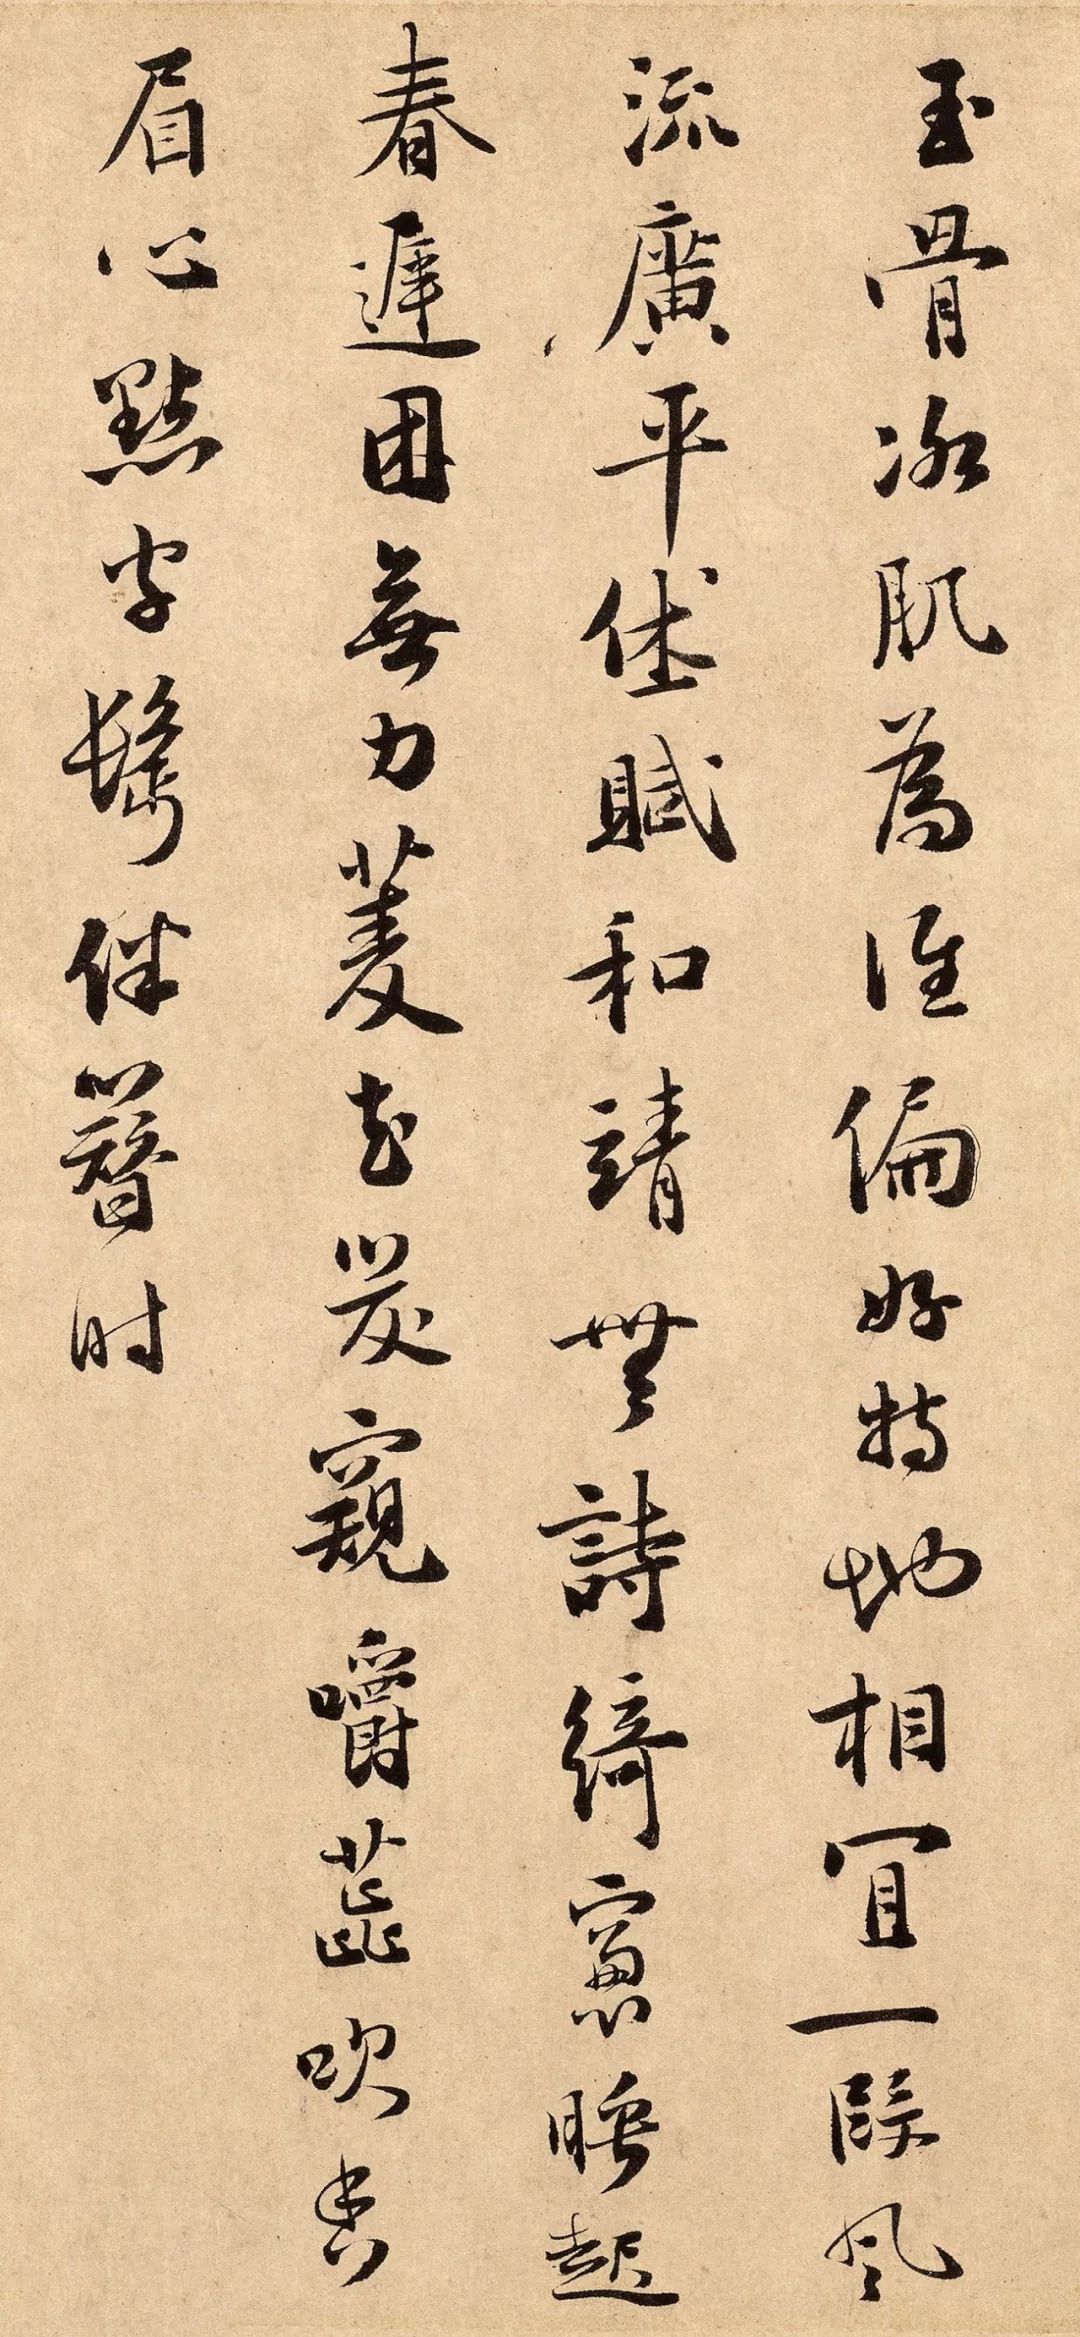 玉骨冰肌為誰偏好特地相宜一段風
流廣平休賦和靖無詩綺窻睡起
春遲困無力菱花笑窺嚼蕊吹香
眉心點處鬢伴簪時